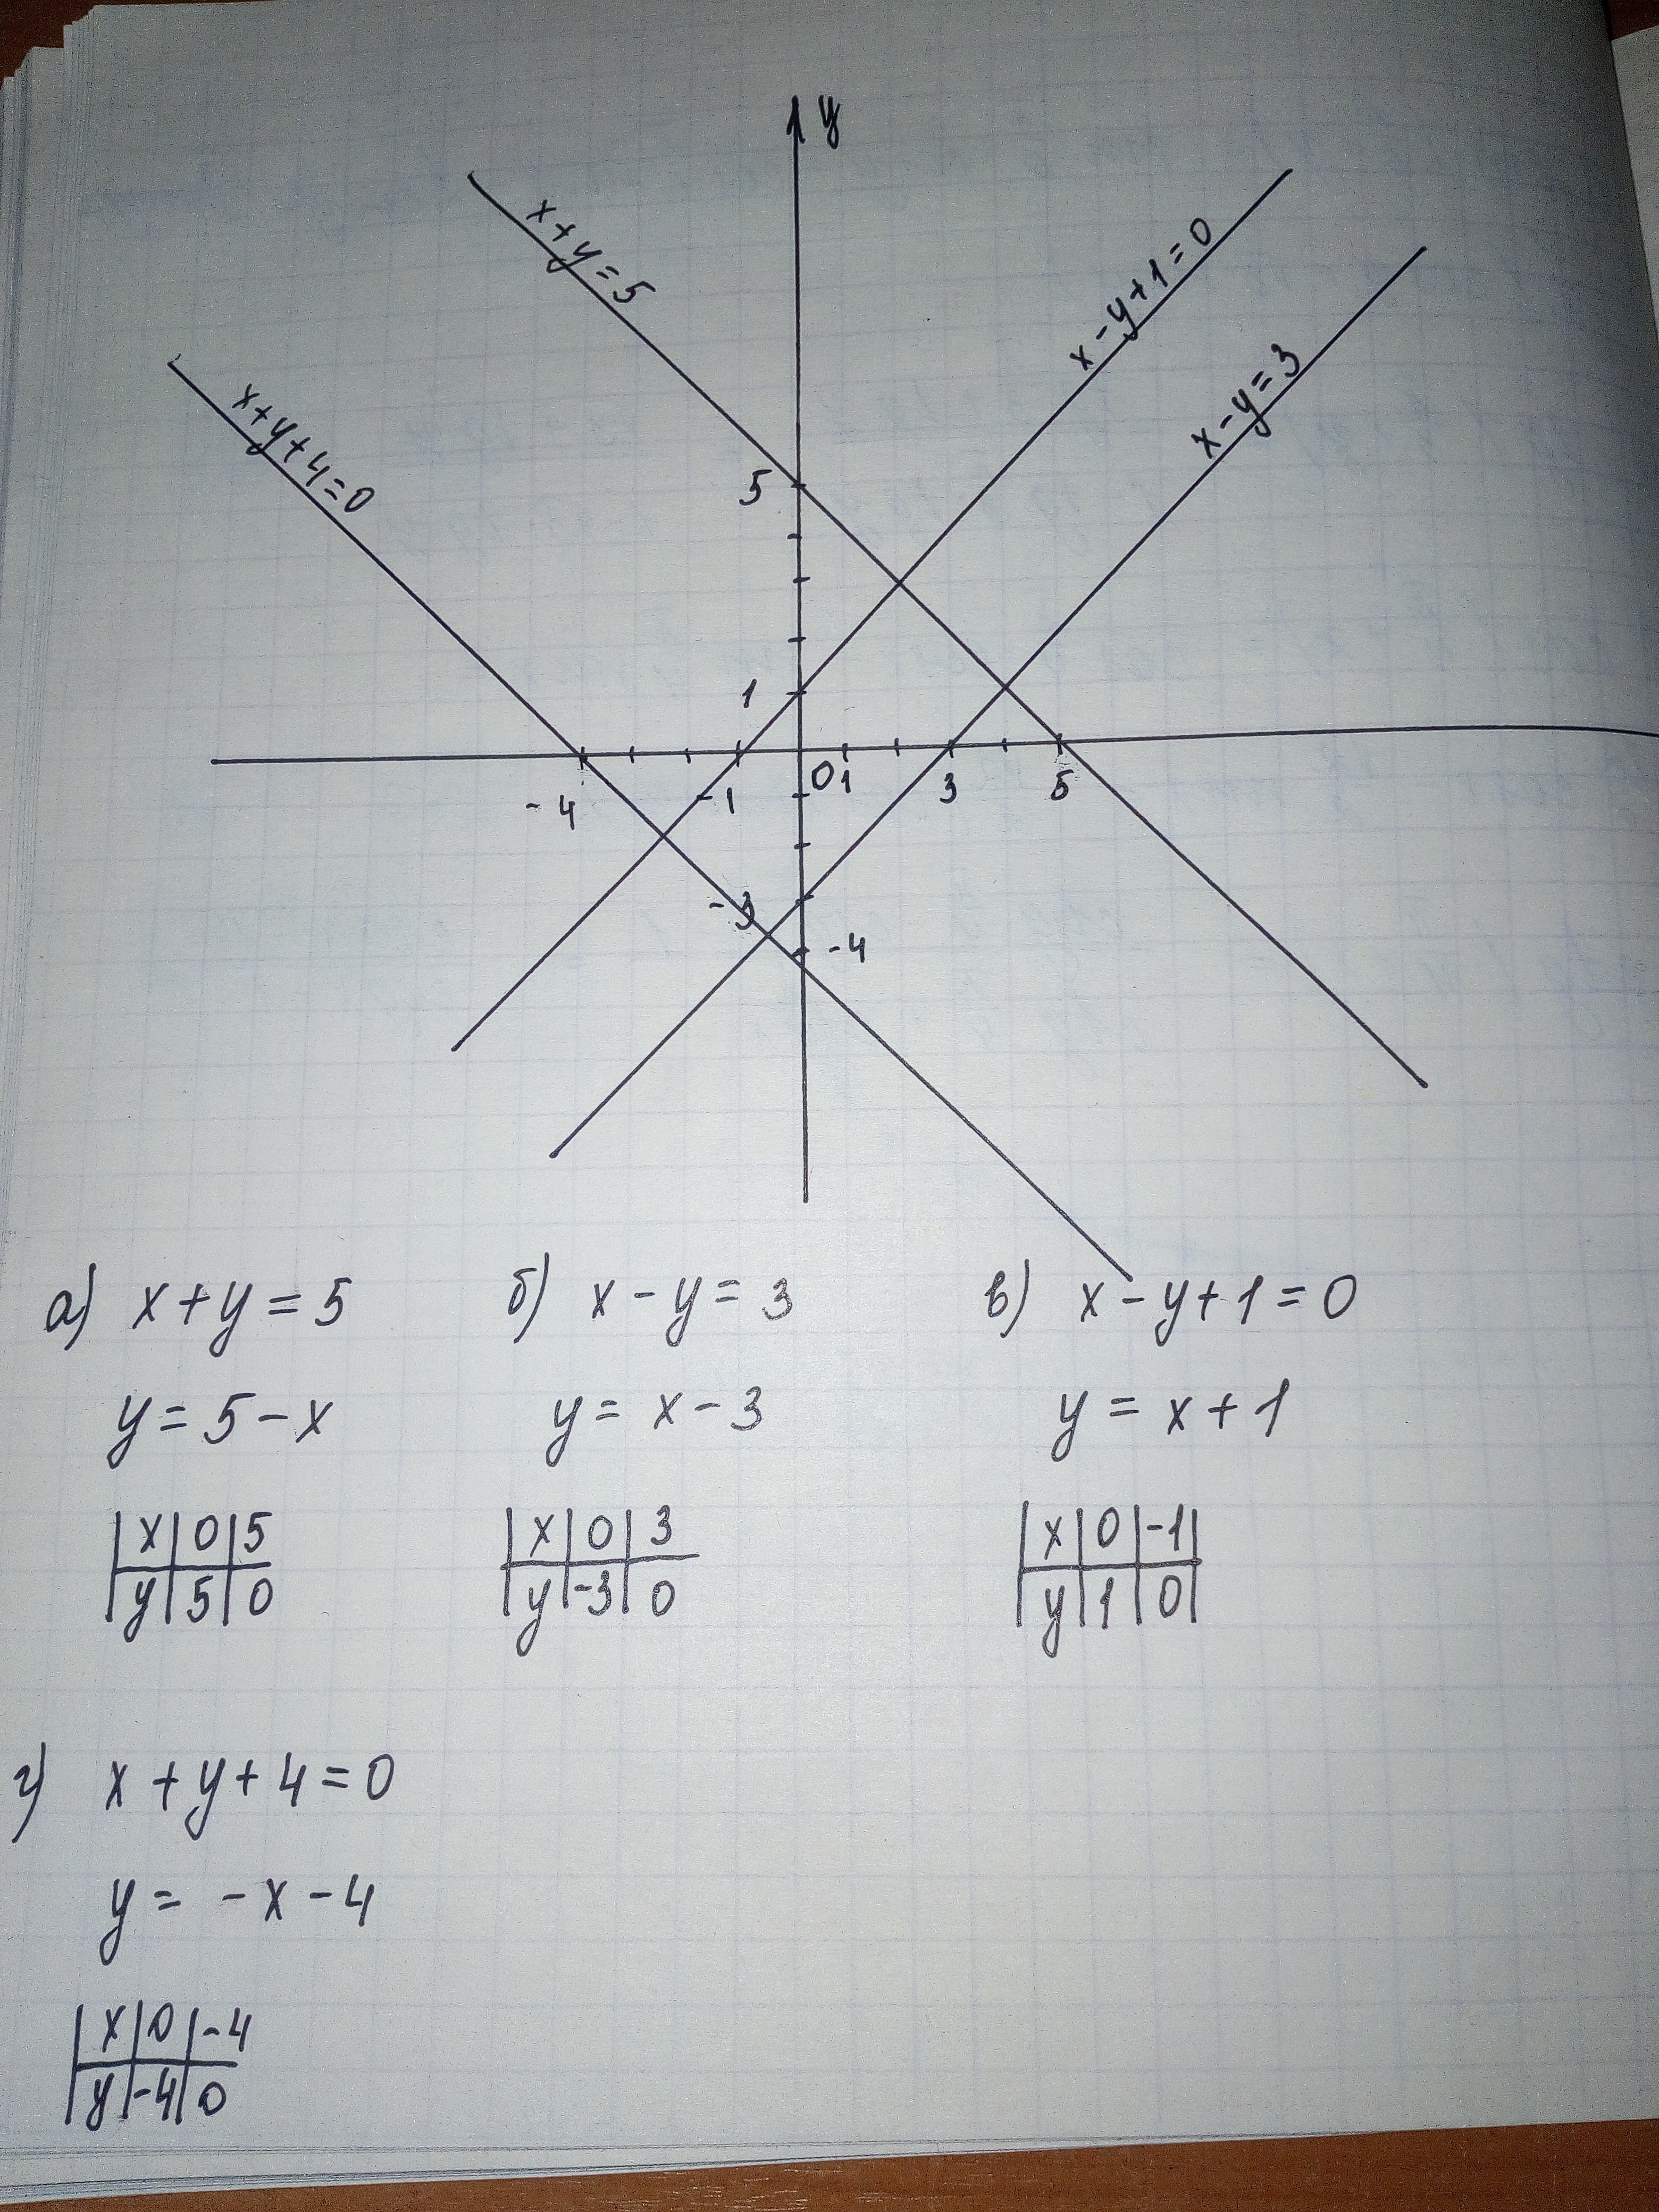 y
x+y=5
x-y+1=0
x-y=3
x+y+4=0
5
1
0 1 3 5
-4 -1
-3
-4
а) x+y=5 б) x-y=3 в) x-y+1=0
y=5-x y=x-3 y=x+1
x 0 5 x 0 3 x 0 -1
y 5 0 y -3 0 y 1 0
г) x+y+4=0
y= -x-4
x 0 -4
y -4 0